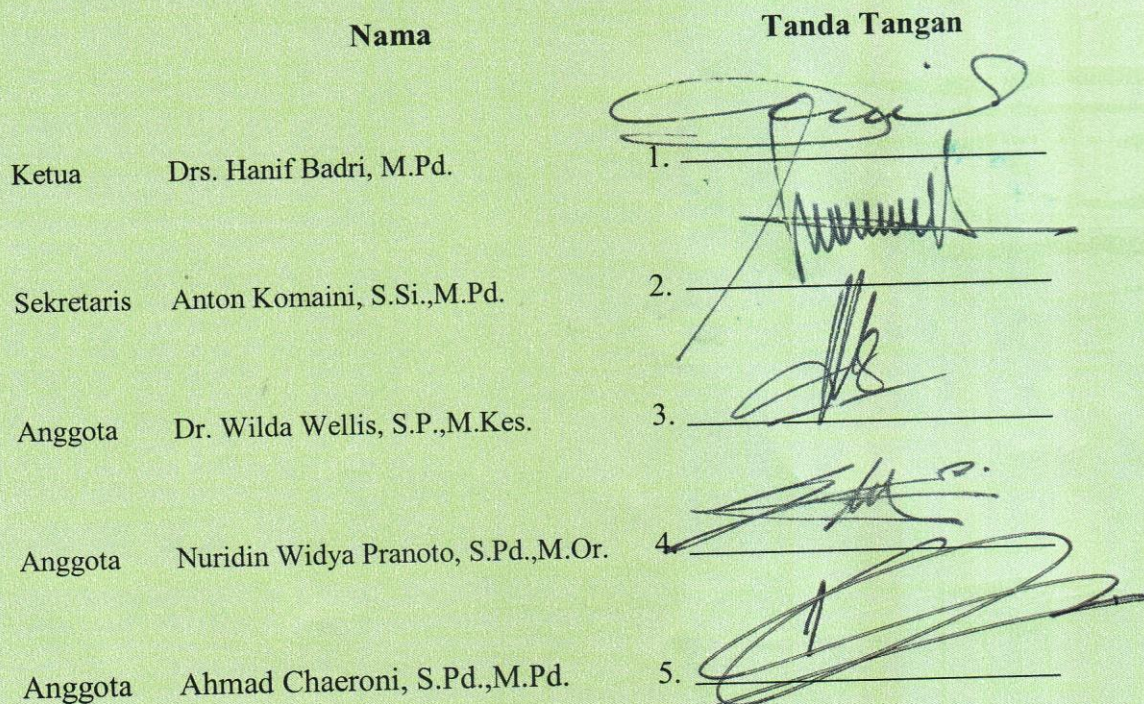 Nama Tanda Tangan
Ketua Drs. Hanif Badri, M.Pd. 1.
Sekretaris Anton Komaini, S.Si.,M.Pd. 2.
Anggota Dr. Wilda Wellis, S.P.,M.Kes. 3.
Anggota Nuridin Widya Pranoto, S.Pd.,M.Or. 4.
Anggota Ahmad Chaeroni, S.Pd.,M.Pd. 5.